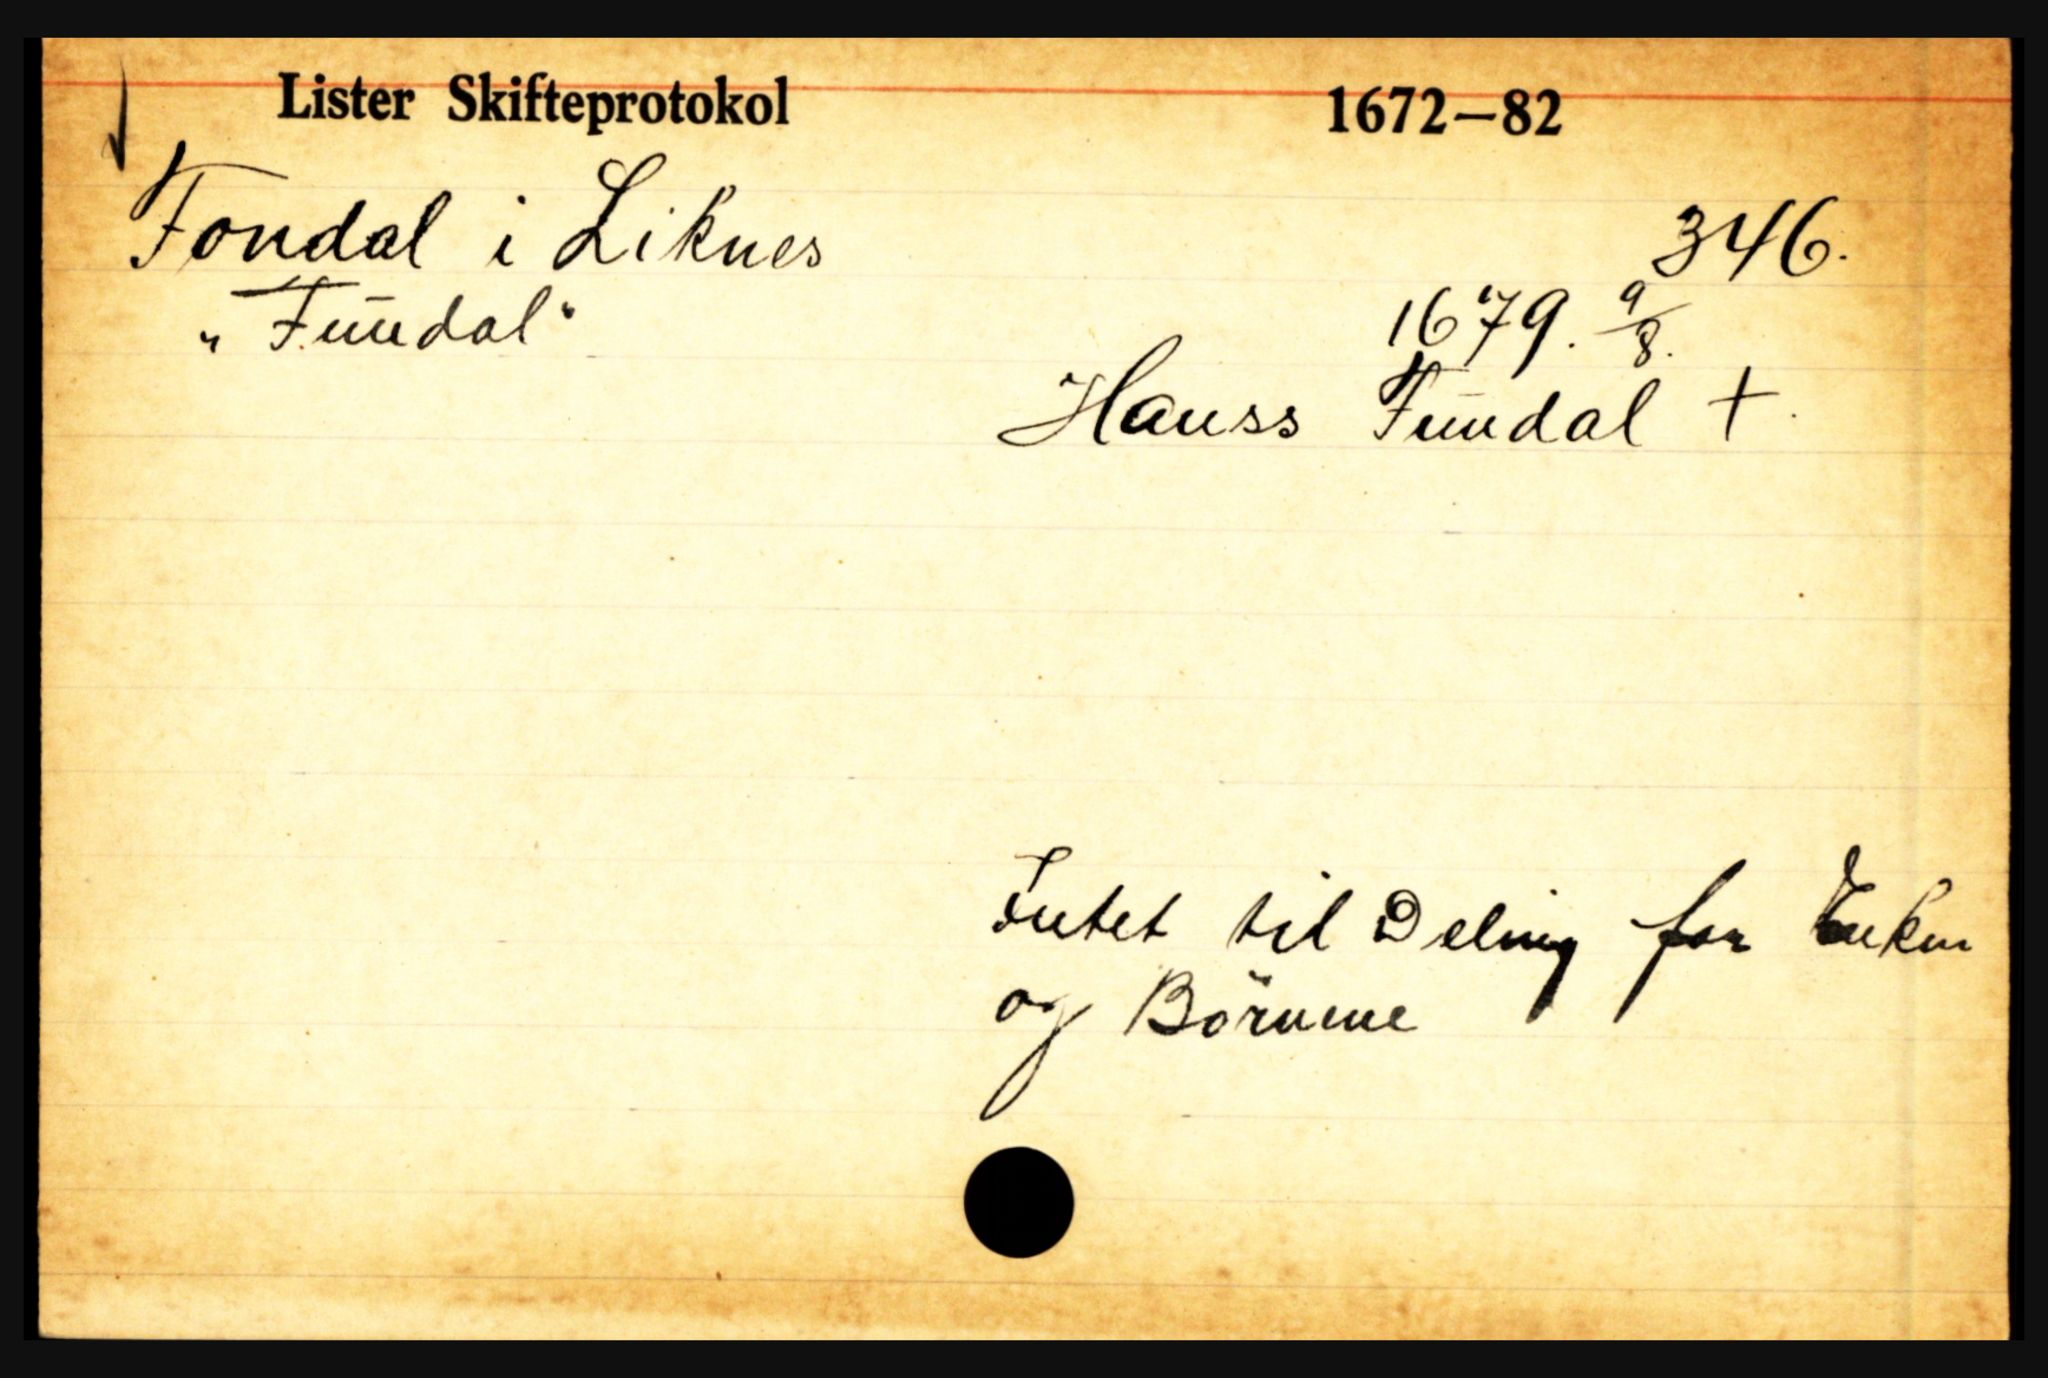 Lister Skifteprotokol 1672—82
Fondal i Liknes 346.
"Fūndal" 1679. 9/8.
Hanss Fūndal †.
Intet til Deling for Enken
og Börnene